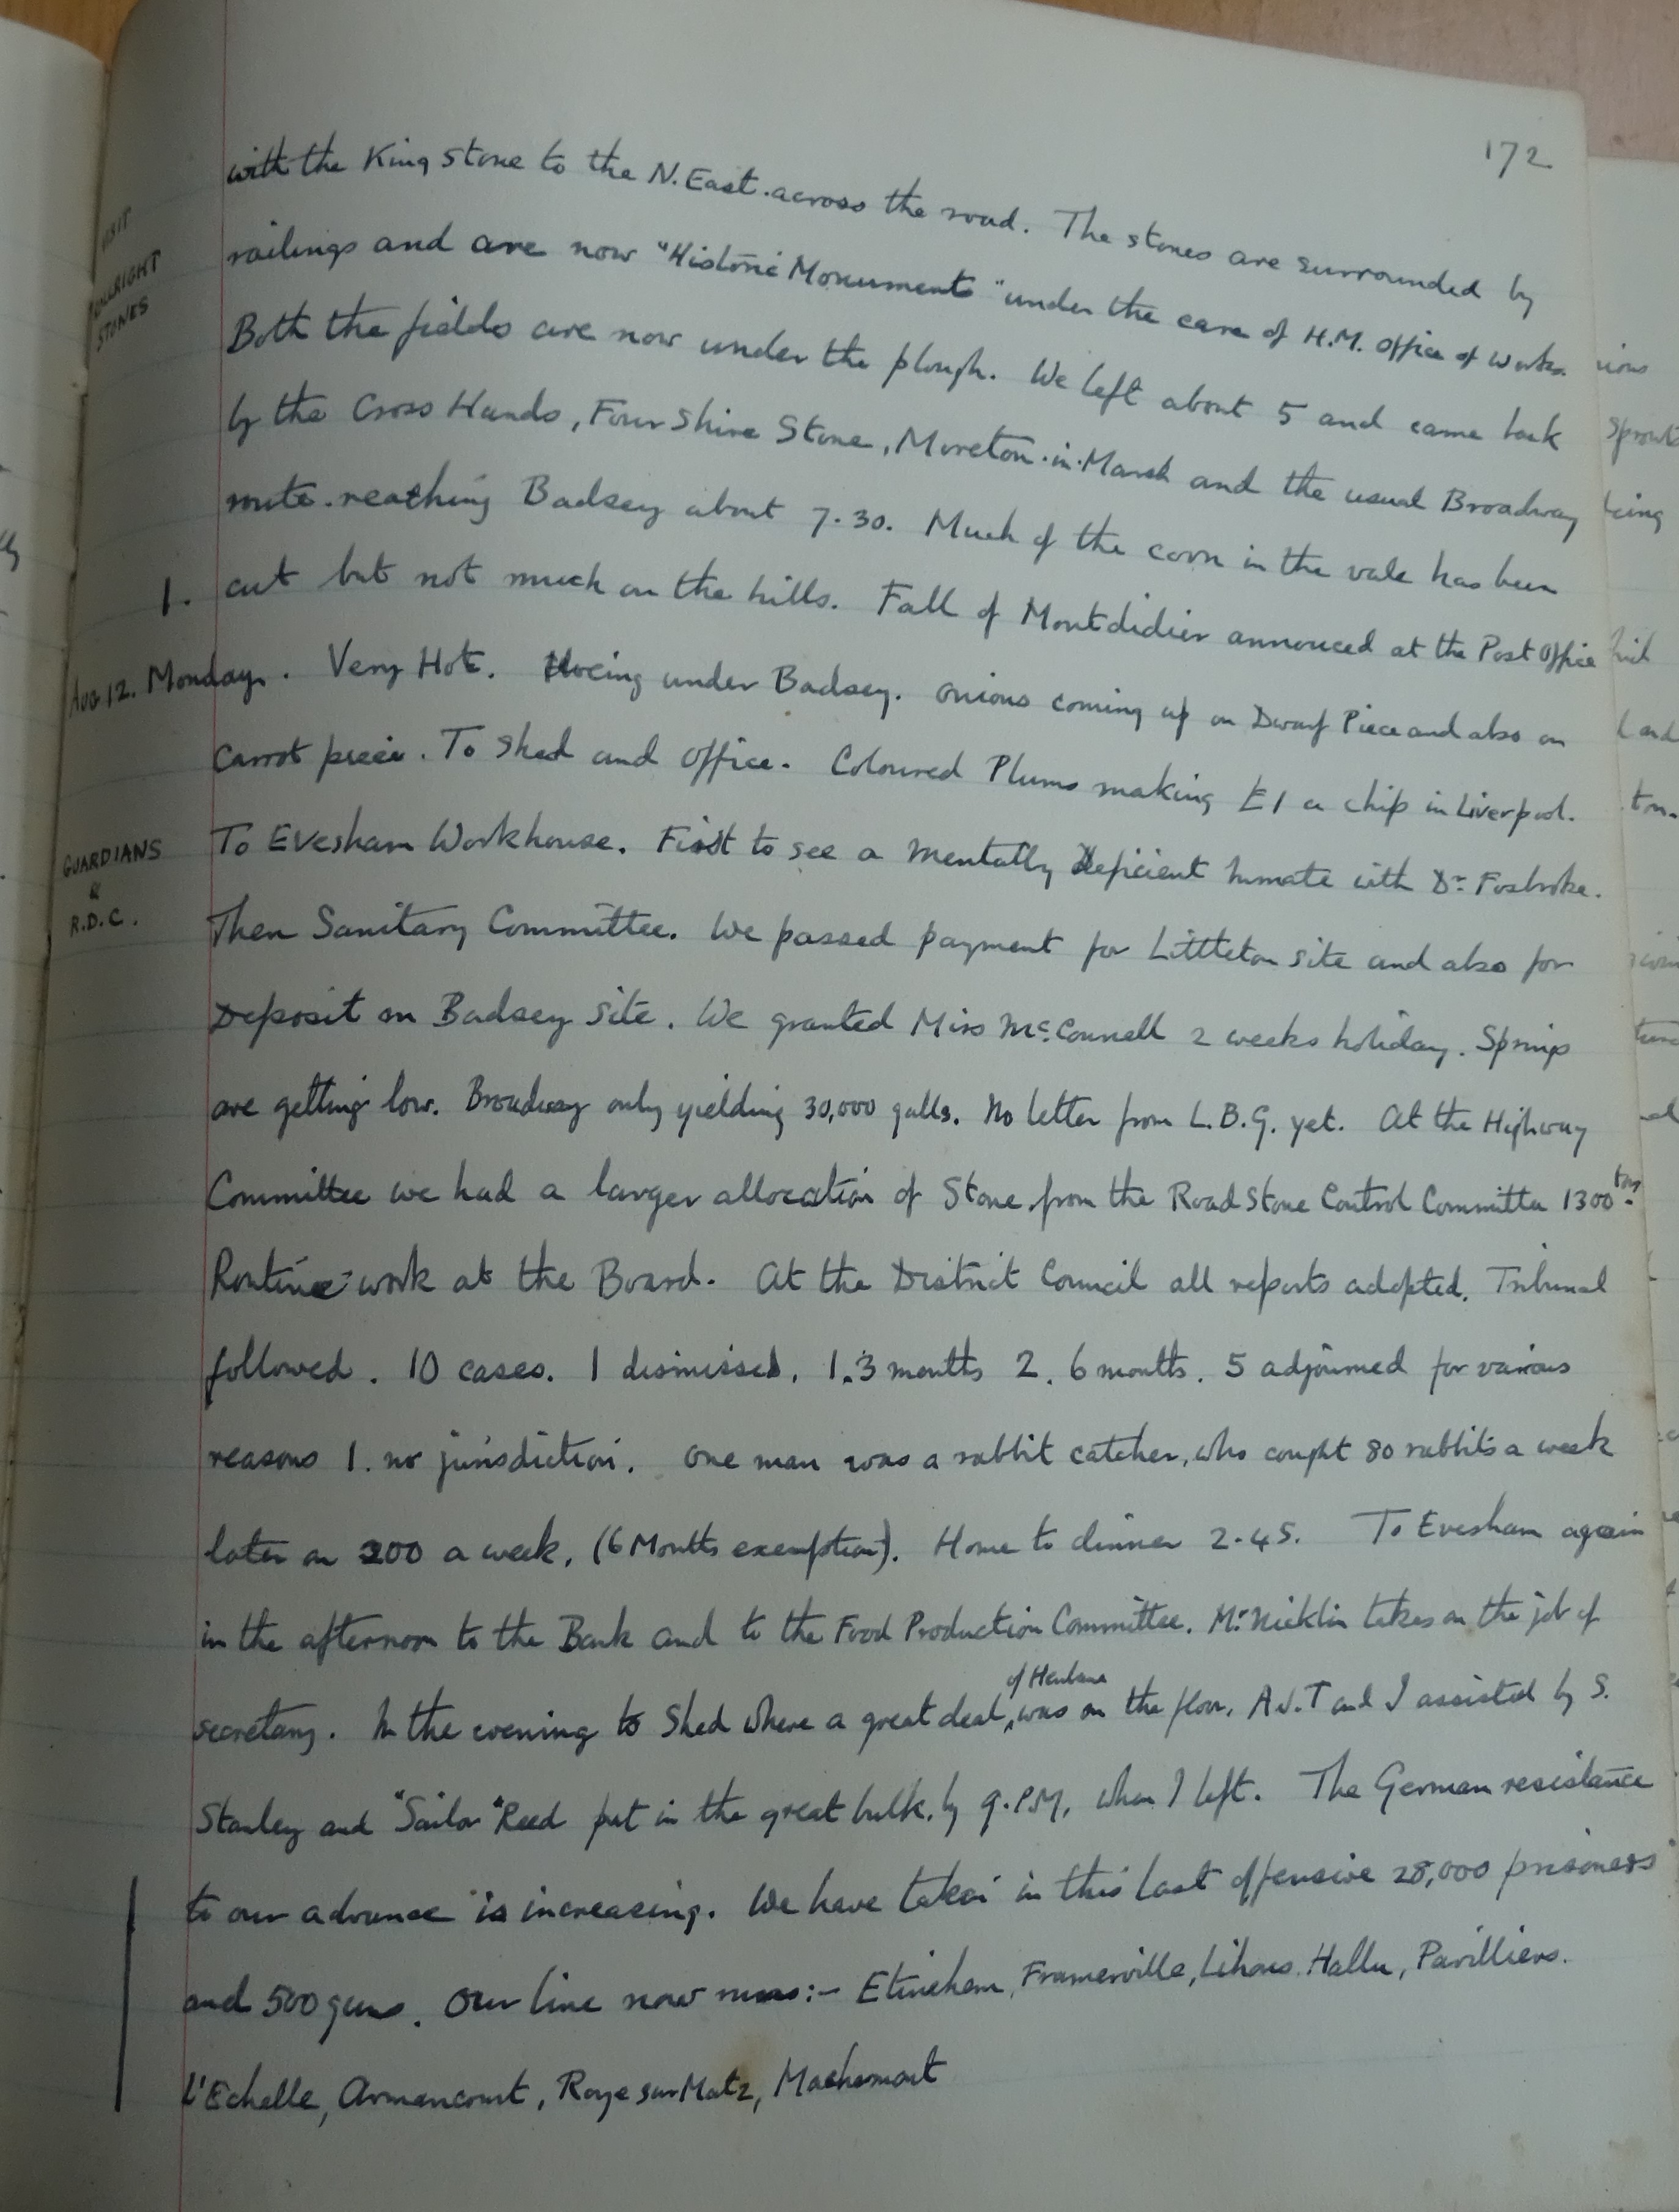 172
with the King stone to the N. East. across the road. The stones are surrounded by
VISIT
ROLLRIGHT
STONES
railings and are now "Historic Monuments" under the care of H.M. Office of Works.
Both the fields are now under the plough. We left about 5 and came back
by the Cross Hands, Four Shire Stone, Moreton-in-Marsh and the usual Broadway
route. reaching Badsey about 7.30. Much of the corn in the vale has been
1. cut but not much on the hills. Fall of Montdidier announced at the Post Office
Aug 12. Monday. Very Hot. Hoeing under Badsey. Onions coming up on Dwarf Piece and also on
Carrot piece. To Shed and Office. Coloured Plums making £1 a chip in Liverpool.
GUARDIANS
&
R.D.C.
To Evesham Workhouse. First to see a Mentally Deficient Inmate with Dr. Fosbroke.
Then Sanitary Committee. We passed payment for Littleton site and also for
Deposit on Badsey Site. We granted Miss McConnell 2 weeks holiday. Springs
are getting low. Broadway only yielding 30,000 galls. No letter from L.B.G. yet. At the Highway
Committee we had a larger allocation of Stone from the Road Stone Control Committee 1300 tons.
Routine work at the Board. At the District Council all reports adopted. Tribunal
followed. 10 cases. 1 dismissed, 1.3 months 2. 6 months. 5 adjourned for various
reasons 1. no jurisdiction. One man was a rabbit catcher, who caught 80 rabbits a week
later on 200 a week. (6 Months exemption). Home to dinner 2.45. To Evesham again
in the afternoon to the Bank and to the Food Production Committee. Mr Nicklin takes on the job of
secretary. In the evening to Shed where a great deal of Henbane was on the floor. A.J.T and I assisted by S.
Stanley and "Sailor" Reed put in the great bulk. by 9.P.M. when I left. The German resistance
to our advance is increasing. We have taken in this last offensive 28,000 prisoners
and 500 guns. Our line now runs:- Etineham, Framerville, Lihons. Hallu, Parilliers.
L'Echelle, Armencourt, Roye sur Matz, Machemont